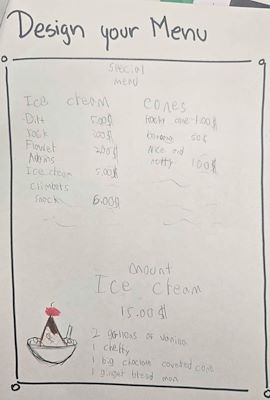 Design your Menu
Special
menu
Ice cream
5.00$
rock 2.00$
2.00$
Ice cream 5.00$
climbers
snack 6.00$
cones
Rocky cone 1.00$
banana 50¢
nice and
nutty 1.00$
mount
Ice cream
15.00$
2 gallons of vanilla
1 cherry
1 big choclate covered cone
1 ginger bread man